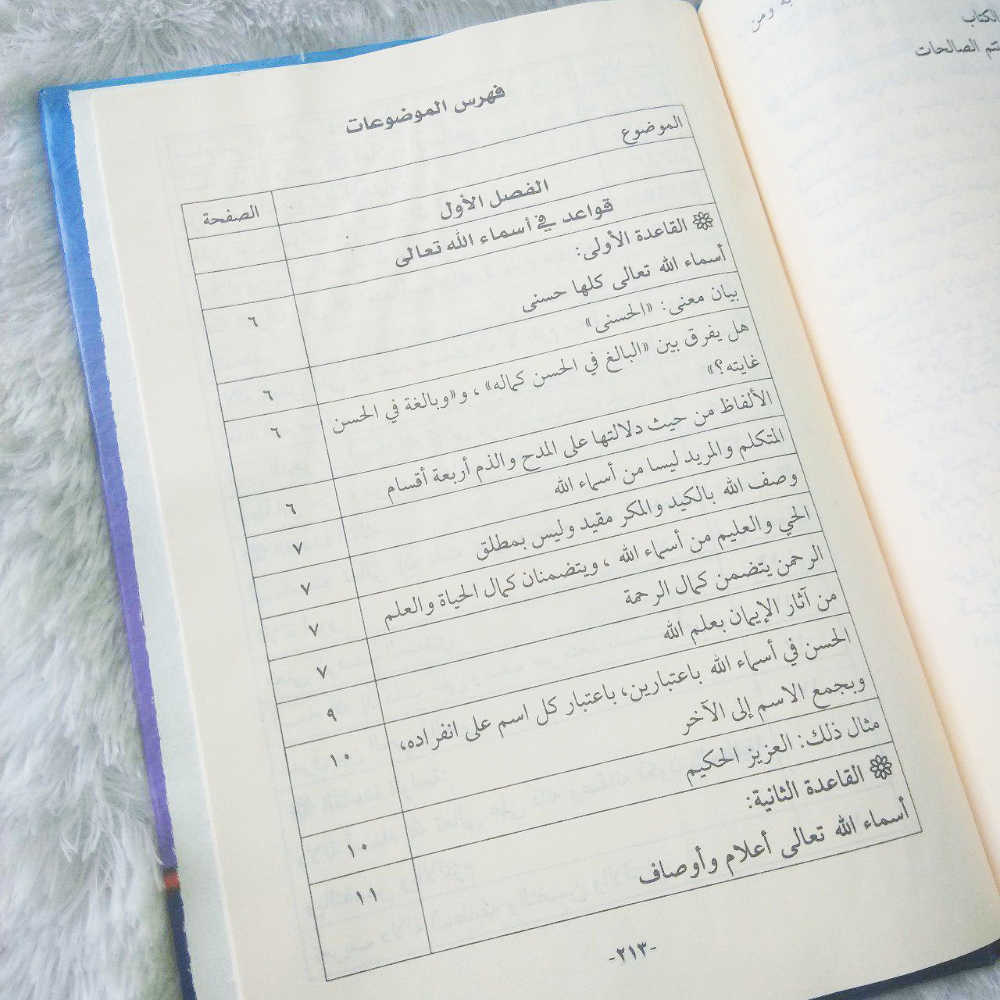 به ومن
الكتاب
تتم الصالحات
فهرس الموضوعات
الموضوع
الصفحة
الفصل الأول
قواعد في أسماء الله تعالى
القاعدة الأولى:
أسماء الله تعالى كلها حسنى
٦
بيان معنى: «الحسنى»
٦
هل يفرق بين «البالغ في الحسن كماله»، و«وبالغة في الحسن
غايته؟»
٦
الألفاظ من حيث دلالتها على المدح والذم أربعة أقسام
٦
المتكلم والمريد ليسا من أسماء الله
٧
وصف الله بالكيد والمكر مقيد وليس بمطلق
٧
الحي والعليم من أسماء الله ، ويتضمنان كمال الحياة والعلم
٧
الرحمن يتضمن كمال الرحمة
٧
من آثار الإيمان بعلم الله
٩
الحسن في أسماء الله باعتبارين، باعتبار كل اسم على انفراده،
وبجمع الاسم إلى الآخر
١٠
مثال ذلك: العزيز الحكيم
١٠
القاعدة الثانية:
أسماء الله تعالى أعلام وأوصاف
١١
-٢١٣-